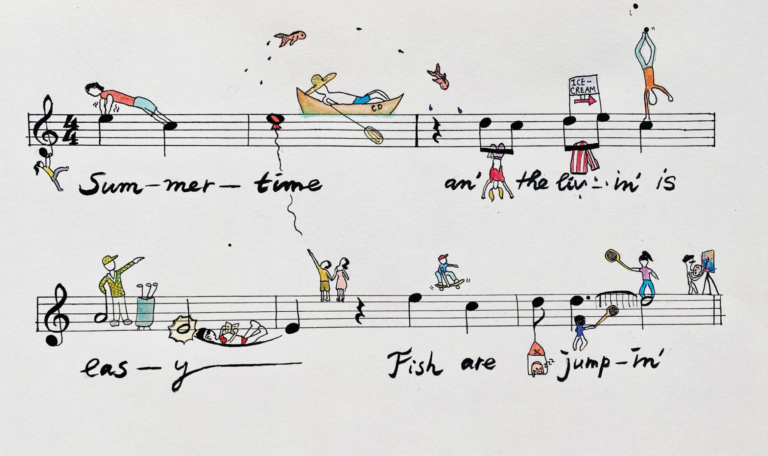 ICE-
CREAM
CD
4
4
Sum-mer-time an' the liv-in' is
eas-y Fish are jump-in'